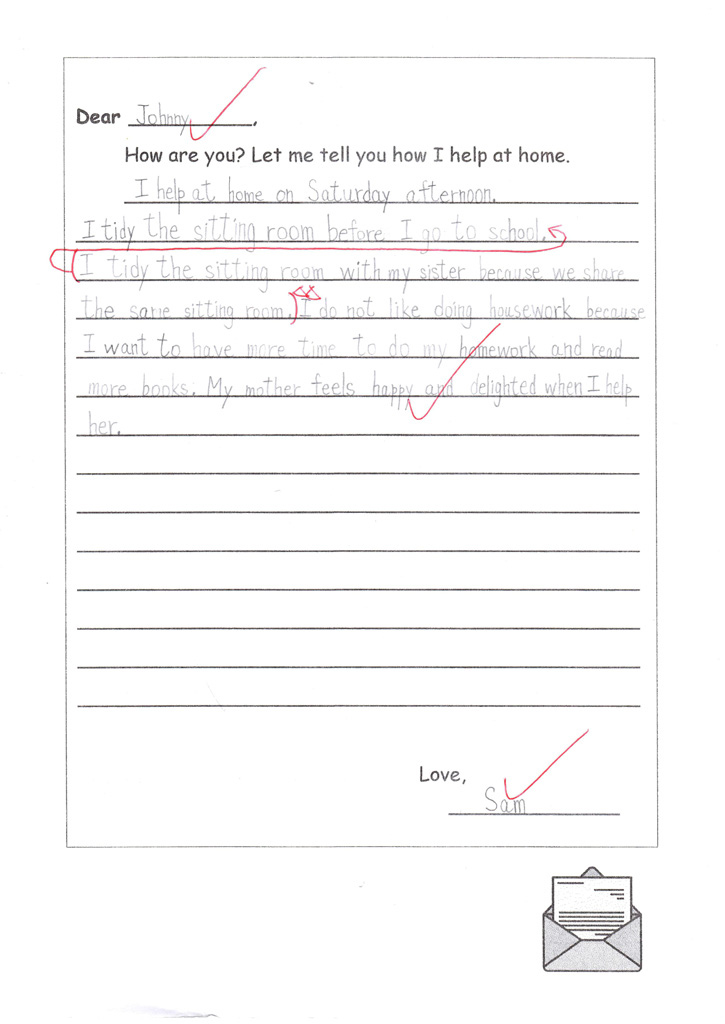 Dear Johnny,
How are you? Let me tell you how I help at home.
I help at home on Saturday afternoon.
I tidy the sitting room before I go to school.
I tidy the sitting room with my sister because we share
the same sitting room. I do not like doing housework because
I want to have more time to do my homework and read
more books. My mother feels happy and delighted when I help
her.
Love,
Sam